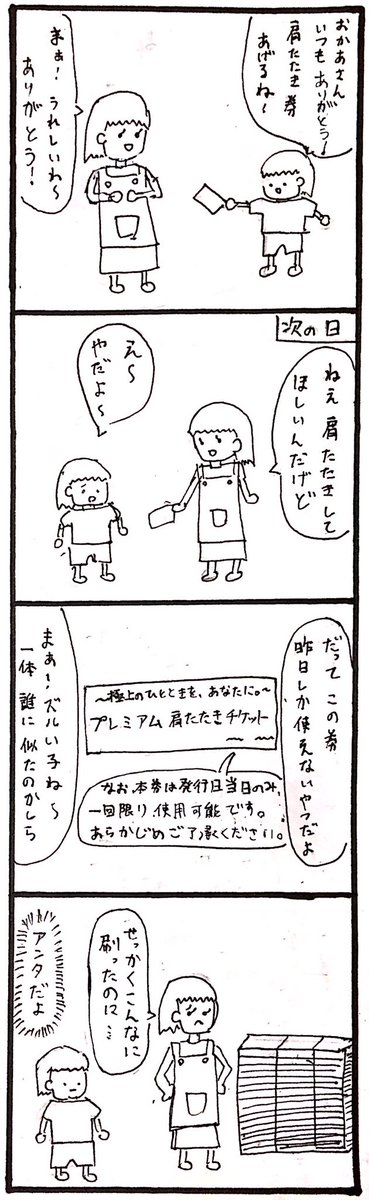 おかあさん
いつもありがとう!
肩たたき券
あげるね〜
まぁ!うれしいわ〜
ありがとう!
次の日
ねえ 肩たたきして
ほしいんだけど
え〜
やだよ〜
だって この券
昨日しか使えないやつだよ
〜極上のひとときを、あなたに。〜
プレミアム 肩たたきチケット
なお、本券は発行日当日のみ、
一回限り使用可能です。
あらかじめご了承ください。
まぁ!ズルい子ね〜
一体 誰に似たのかしら
せっかくこんなに
刷ったのに…
アンタだよ